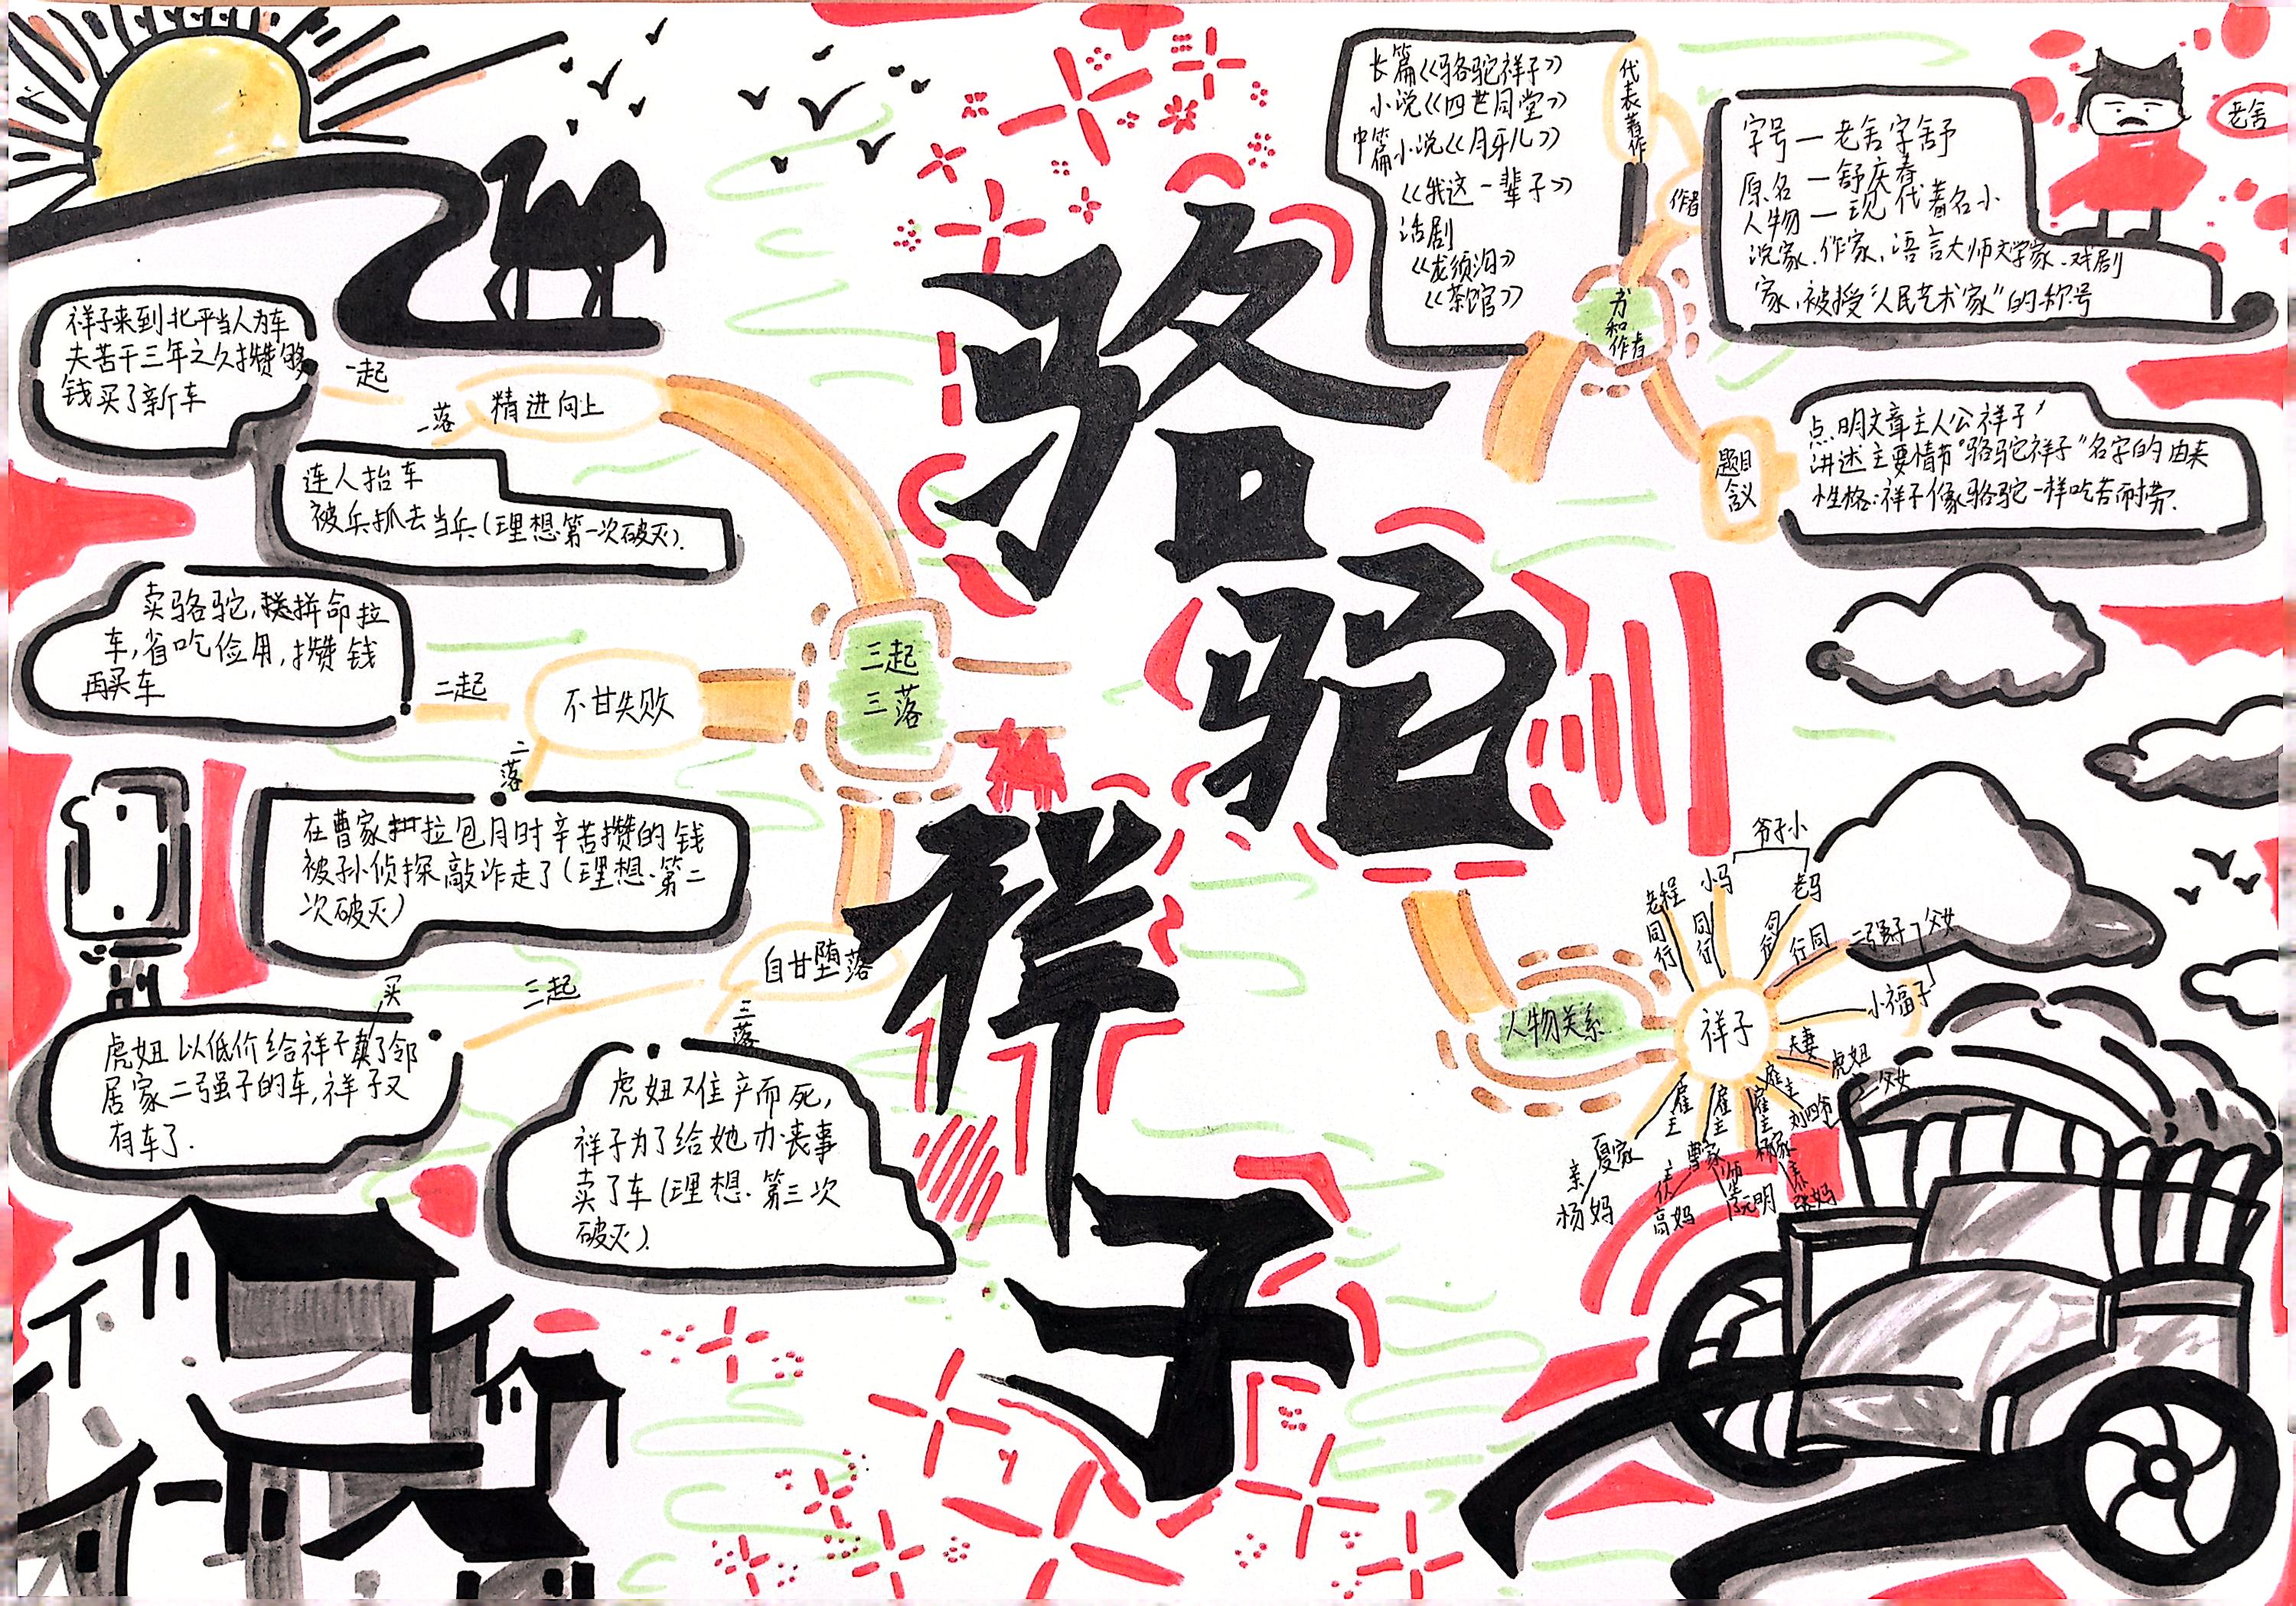 骆驼祥子
长篇《骆驼祥子》
小说《四世同堂》
中篇小说《月牙儿》
《我这一辈子》
话剧
《龙须沟》
《茶馆》
代表著作
作者
老舍
字号一老舍字舒
原名一舒庆春
人物一现代著名小
说家、作家、语言大师文学家、戏剧
家、被授"人民艺术家"的称号
和作者
题目
含义
点明文章主人公祥子
讲述主要情节"骆驼祥子"名字的由来
性格:祥子像骆驼一样吃苦而耐劳.
三起
三落
精进向上
一起
祥子来到北平当人力车
夫苦干三年之久攒够
钱买了新车
一落
连人抬车
被兵抓去当兵(理想第一次破灭).
不甘失败
二起
卖骆驼,拼命拉
车,省吃俭用,攒钱
再买车
二落
在曹家拉包月时辛苦攒的钱
被孙侦探敲诈走了(理想.第二
次破灭)
自甘堕落
三起
虎妞以低价给祥子买了邻
居家二强子的车,祥子又
有车了.
三落
虎妞难产而死,
祥子为了给她办丧事
卖了车(理想.第三次
破灭).
人物关系
祥子
老程
同行
小马
同行
爷子小
老马
同行
行同
二强子
父女
小福子
夫妻
虎妞
父女
雇主
刘四爷
雇主
杨家
张妈
雇主
曹家
高妈
阮明
雇主
夏家
杨妈